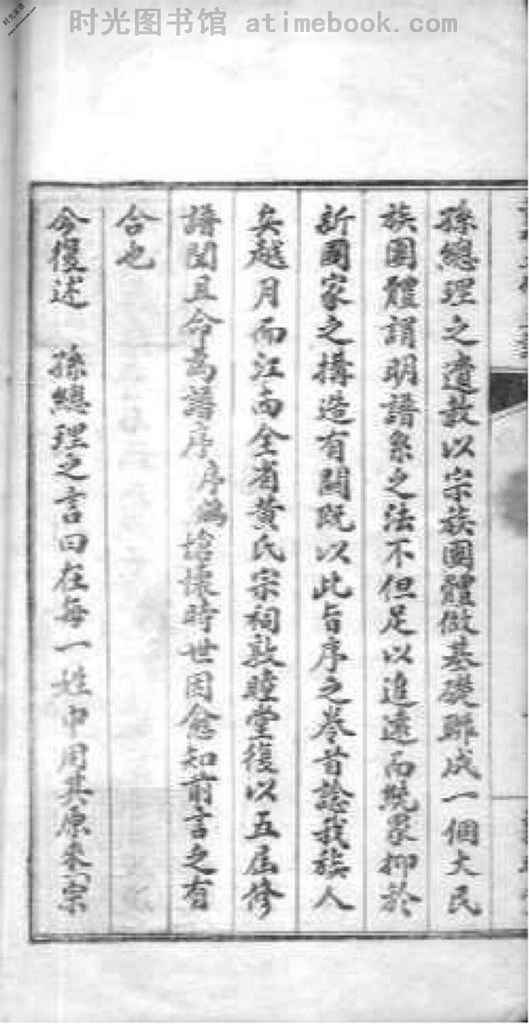 时光图书馆 atimebook.com
孫總理之遺教以宗族團體做基礎聯成一個大民
族團體謂明譜系之法不但足以追遠而統眾抑於
新國家之搆造有關既以此旨序之卷首諗我族人
矣越月而江南全省黃氏宗祠敦睦堂復以五屆修
譜聞且命為譜序序愴懷時世因愈知前言之有
合也
今復述 孫總理之言曰在每一姓中用其原來宗